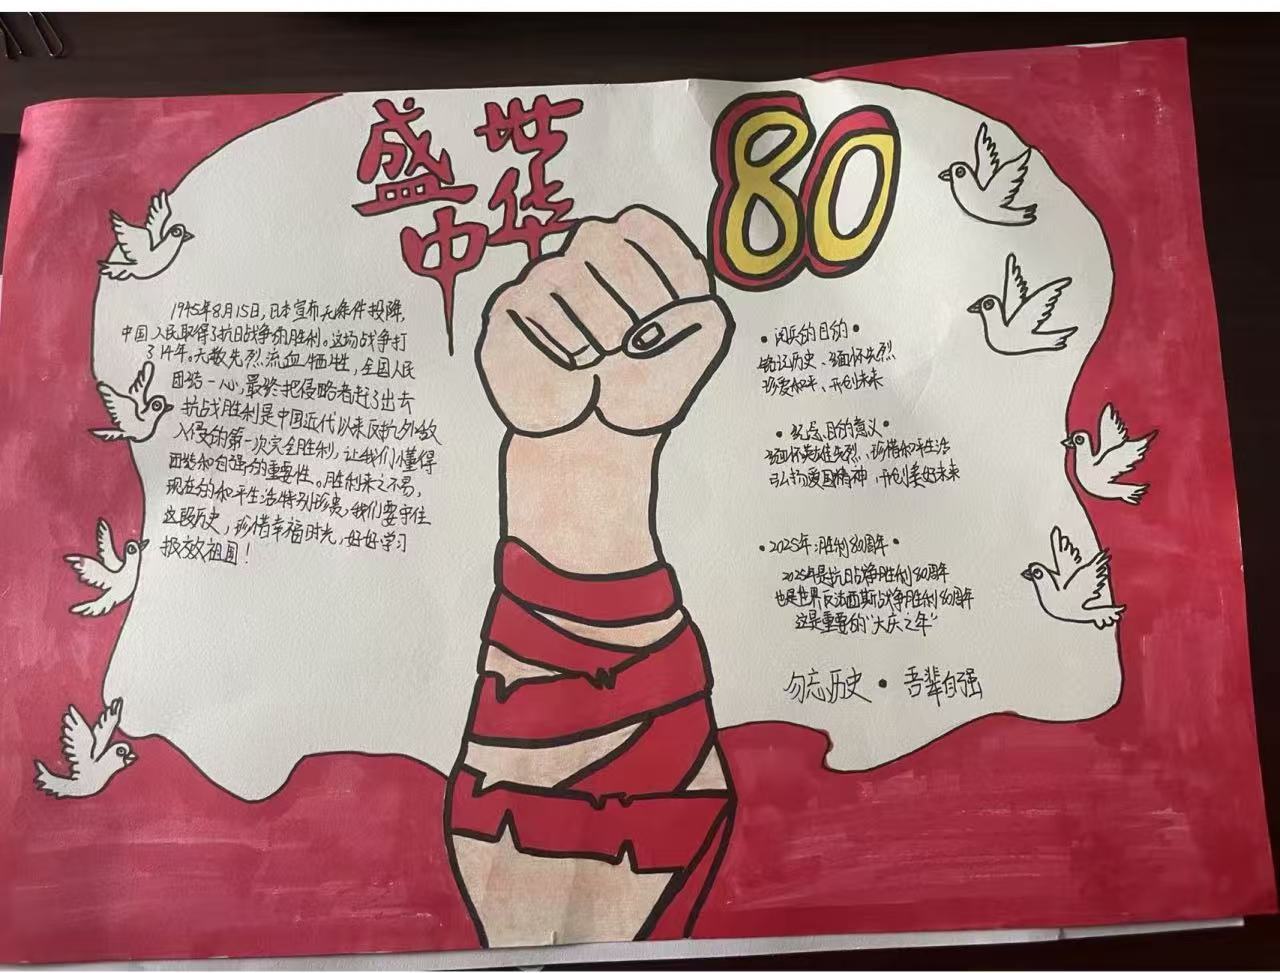 盛世
中华
80
1945年8月15日,日本宣布无条件投降,
中国人民取得了抗日战争的胜利。这场战争打
了14年。无数先烈流血牺牲,全国人民
团结一心,最终把侵略者赶了出去
抗战胜利是中国近代以来反抗外敌
入侵的第一次完全胜利,让我们懂得
团结和自强的重要性。胜利来之不易,
现在的和平生活特别珍贵,我们要守住
这段历史,珍惜幸福时光,好好学习
报效祖国!
•阅兵的目的•
铭记历史、缅怀先烈
珍爱和平、开创未来
•纪念目的意义•
缅怀英雄先烈,珍惜和平生活
弘扬爱国精神,开创美好未来
•2025年:胜利80周年•
2025年是抗日战争胜利80周年
也是世界反法西斯战争胜利80周年
这是重要的“大庆之年”
勿忘历史•吾辈自强